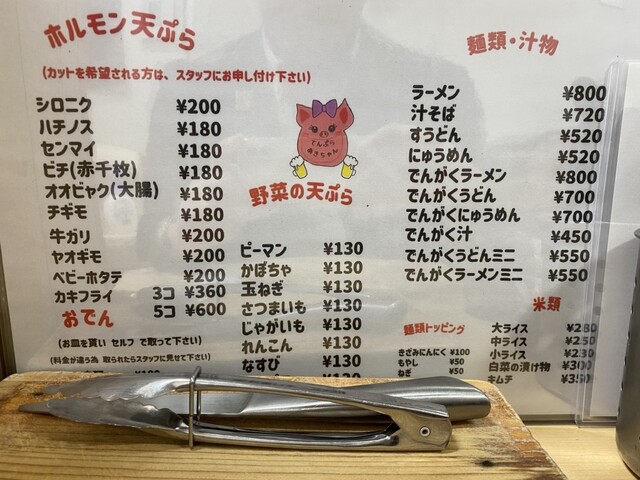 ホルモン天ぷら
(カットを希望される方は、スタッフにお申し付け下さい)
シロニク ¥200
ハチノス ¥180
センマイ ¥180
ビチ(赤千枚) ¥180
オオビャク(大腸) ¥180
チギモ ¥180
牛ガリ ¥200
ヤオギモ ¥200
ベビーホタテ ¥200
カキフライ 3コ ¥360
5コ ¥600
おでん
(お皿を買い セルフ で取って下さい)
(料金が違う為 取られたらスタッフに見せて下さい)
でんぷら
あきちゃん
野菜の天ぷら
ピーマン ¥130
かぼちゃ ¥130
玉ねぎ ¥130
さつまいも ¥130
じゃがいも ¥130
れんこん ¥130
なすび ¥130
麺類・汁物
ラーメン ¥800
汁そば ¥720
すうどん ¥520
にゅうめん ¥520
でんがくラーメン ¥800
でんがくうどん ¥700
でんがくにゅうめん ¥700
でんがく汁 ¥450
でんがくうどんミニ ¥550
でんがくラーメンミニ ¥550
麺類トッピング
きざみにんにく ¥100
もやし ¥50
ねぎ ¥50
米類
大ライス ¥280
中ライス ¥250
小ライス ¥230
白菜の漬け物 ¥300
キムチ ¥350